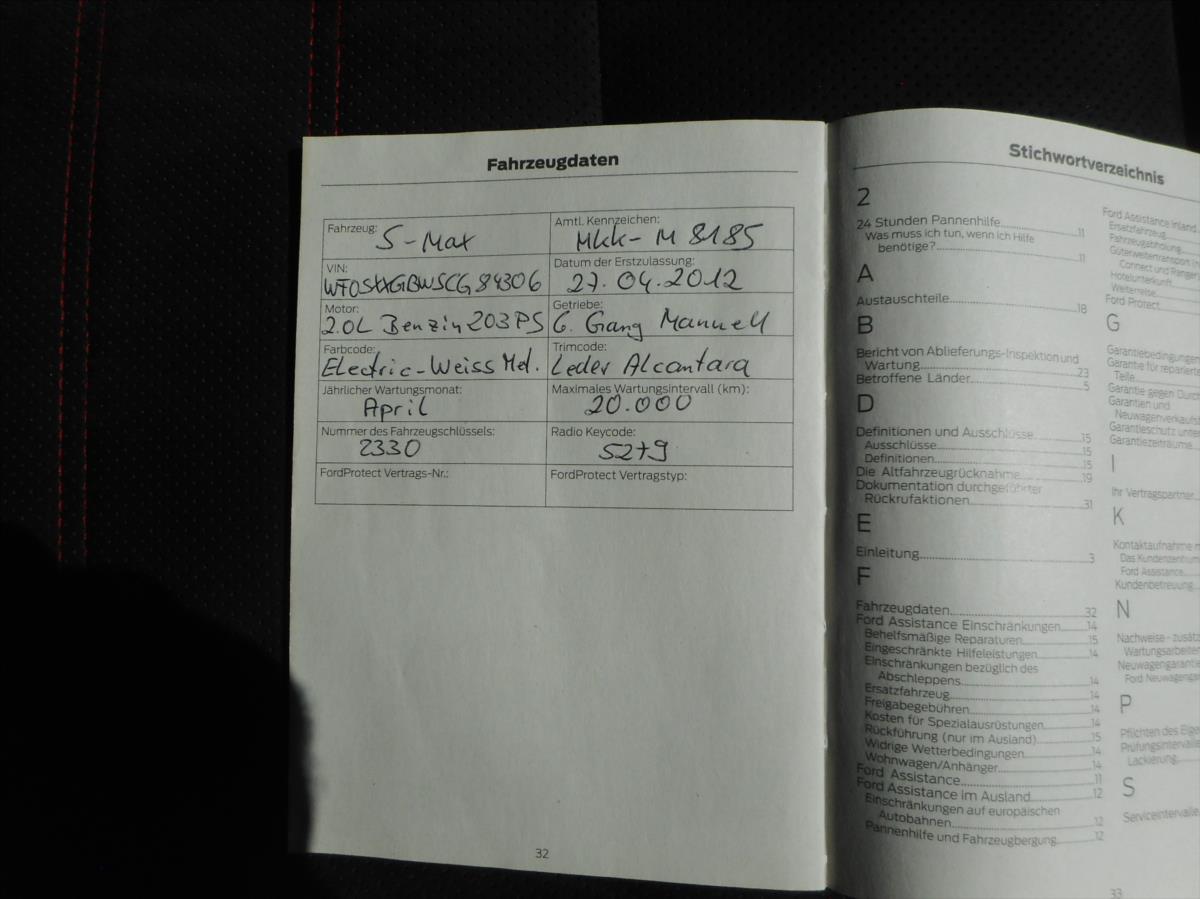 Fahrzeugdaten
Fahrzeug: S-Max
Amtl. Kennzeichen: MKK-M 8185
VIN: WF0SXXGBWSCG84306
Datum der Erstzulassung: 27.04.2012
Motor: 2.0L Benzin 203 PS
Getriebe: 6. Gang Manuell
Farbcode: Electric-Weiss Met.
Trimcode: Leder Alcantara
Jährlicher Wartungsmonat: April
Maximales Wartungsintervall (km): 20.000
Nummer des Fahrzeugschlüssels: 2330
Radio Keycode: 5279
FordProtect Vertrags-Nr.:
FordProtect Vertragstyp:
32
Stichwortverzeichnis
2
24 Stunden Pannenhilfe 11
Was muss ich tun, wenn ich Hilfe
benötige? 11
A
Austauschteile 18
B
Bericht von Ablieferungs-Inspektion und
Wartung 23
Betroffene Länder 5
D
Definitionen und Ausschlüsse 15
Ausschlüsse 15
Definitionen 15
Die Altfahrzeugrücknahme 19
Dokumentation durchgeführter
Rückrufaktionen 31
E
Einleitung 3
F
Fahrzeugdaten 32
Ford Assistance Einschränkungen 14
Behelfsmäßige Reparaturen 15
Eingeschränkte Hilfeleistungen 14
Einschränkungen bezüglich des
Abschleppens 14
Ersatzfahrzeug 14
Freigabegebühren 14
Kosten für Spezialausrüstungen 14
Rückführung (nur im Ausland) 15
Widrige Wetterbedingungen 14
Wohnwagen/Anhänger 14
Ford Assistance 11
Ford Assistance im Ausland 12
Einschränkungen auf europäischen
Autobahnen 12
Pannenhilfe und Fahrzeugbergung 12
Ford Assistance Inland
Ersatzfahrzeug
Fahrzeugabholung
Güterweitertransport
Connect und Ranger
Hotelunterkunft
Weiterreise
Ford Protect
G
Garantiebedingungen
Garantie für reparierte
Teile
Garantie gegen Durch
Garantien und
Neuwagenverkaufs
Garantieschutz unter
Garantiezeiträume
I
Ihr Vertragspartner
K
Kontaktaufnahme m
Das Kundenzentrum
Ford Assistance
Kundenbetreuung
N
Nachweise - zusätz
Wartungsarbeiten
Neuwagengarantie
Ford Neuwagengar
P
Pflichten des Eige
Prüfungsintervalle
Lackierung
S
Serviceintervalle
33